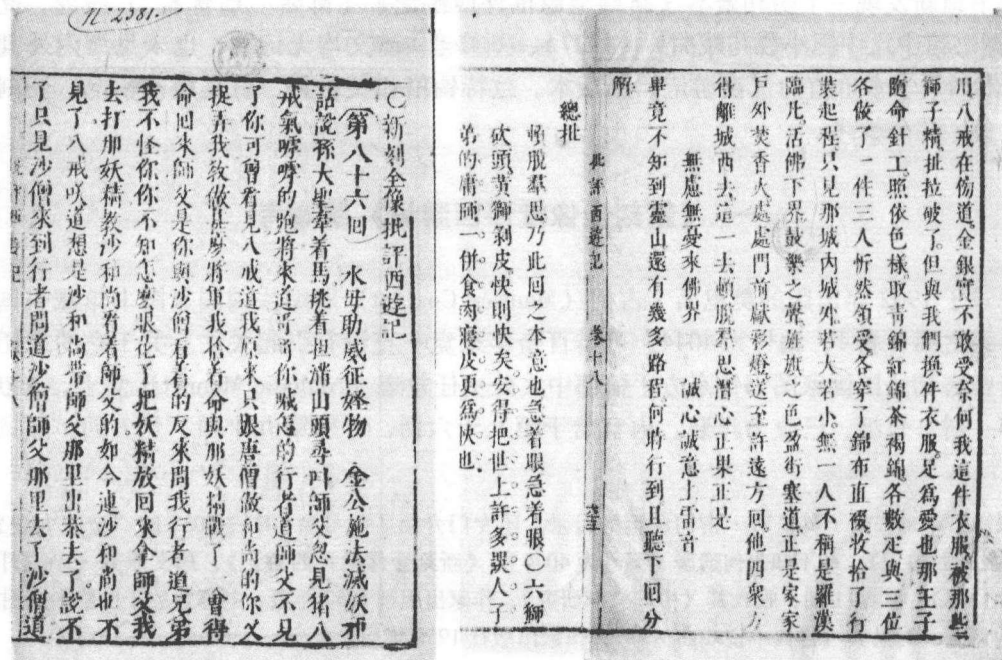 川八戒在傍道金銀實不敢受奈何我這件衣服被那些
獅子精扯拉破了但與我們換件衣服足爲愛也那王子
隨命針工照依色樣取青錦紅錦茶褐錦各數疋與三位
各做了一件三人忻然領受各穿了錦布直裰收拾了行
裝起程只見那城內城外若大若小無一人不稱是羅漢
臨凡活佛下界鼓樂之聲旌旗之色盈街塞道正是家家
戶外焚香火處處門前獻彩燈送至許遠方回他四衆方
得離城西去這一去頓脫羣思潛心正果正是
無慮無憂來佛界 誠心誠意上雷音
畢竟不知到靈山還有幾多路程何時行到且聽下回分
解
總批
頓脫羣思乃此回之本意也急着眼急着眼○六獅
砍頭黃獅剝皮快則快矣安得把世上許多誤人子
弟的庸師一併食肉寢皮更爲快也
批評西遊記 卷十八
n° 2381.
○新刻全像批評西遊記
第八十六回 木母助威征怪物 金公施法滅妖邪
話說孫大聖牽着馬挑着擔滿山頭尋叫師父忽見猪八
戒氣嘑嘑的跑將來道哥哥你喊怎的行者道師父不見
了你可曾看見八戒道我原來只跟唐僧做和尚的你又
捉弄我教做甚麽將軍我捨着命與那妖精戰了一會得
命回來師父是你與沙僧看着的反來問我行者道兄弟
我不怪你你不知怎麽眼花了把妖精放回來拿師父我
去打那妖精教沙和尚看着師父的如今連沙和尚也不
見了八戒笑道想是沙和尚帶師父那里出恭去了說不
了只見沙僧來到行者問道沙僧師父那里去了沙僧道